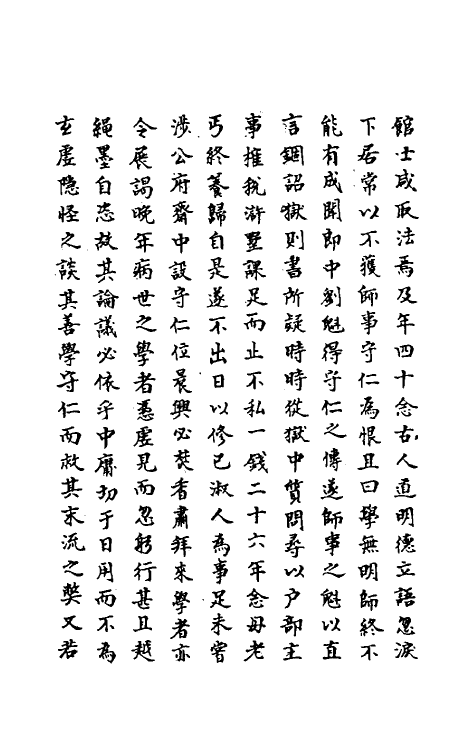 館士咸取法焉及年四十念古人道明德立語忽淚
下居常以不獲師事守仁為恨且曰學無明師終不
能有成聞郎中劉魁得守仁之傳遂師事之魁以直
言錮詔獄則書所疑時時從獄中質問尋以户部主
事榷稅滸墅課足而止不私一錢二十六年念毋老
丐終養歸自是遂不出日以修已淑人為事足未嘗
涉公府齋中設守仁位晨興必焚香肅拜來學者亦
令展謁晚年病世之學者慿虚見而忽躬行甚且越
繩墨自恣故其論議必依乎中庸切于日用而不為
玄虚隐怪之談其善學守仁而救其末流之獘又若